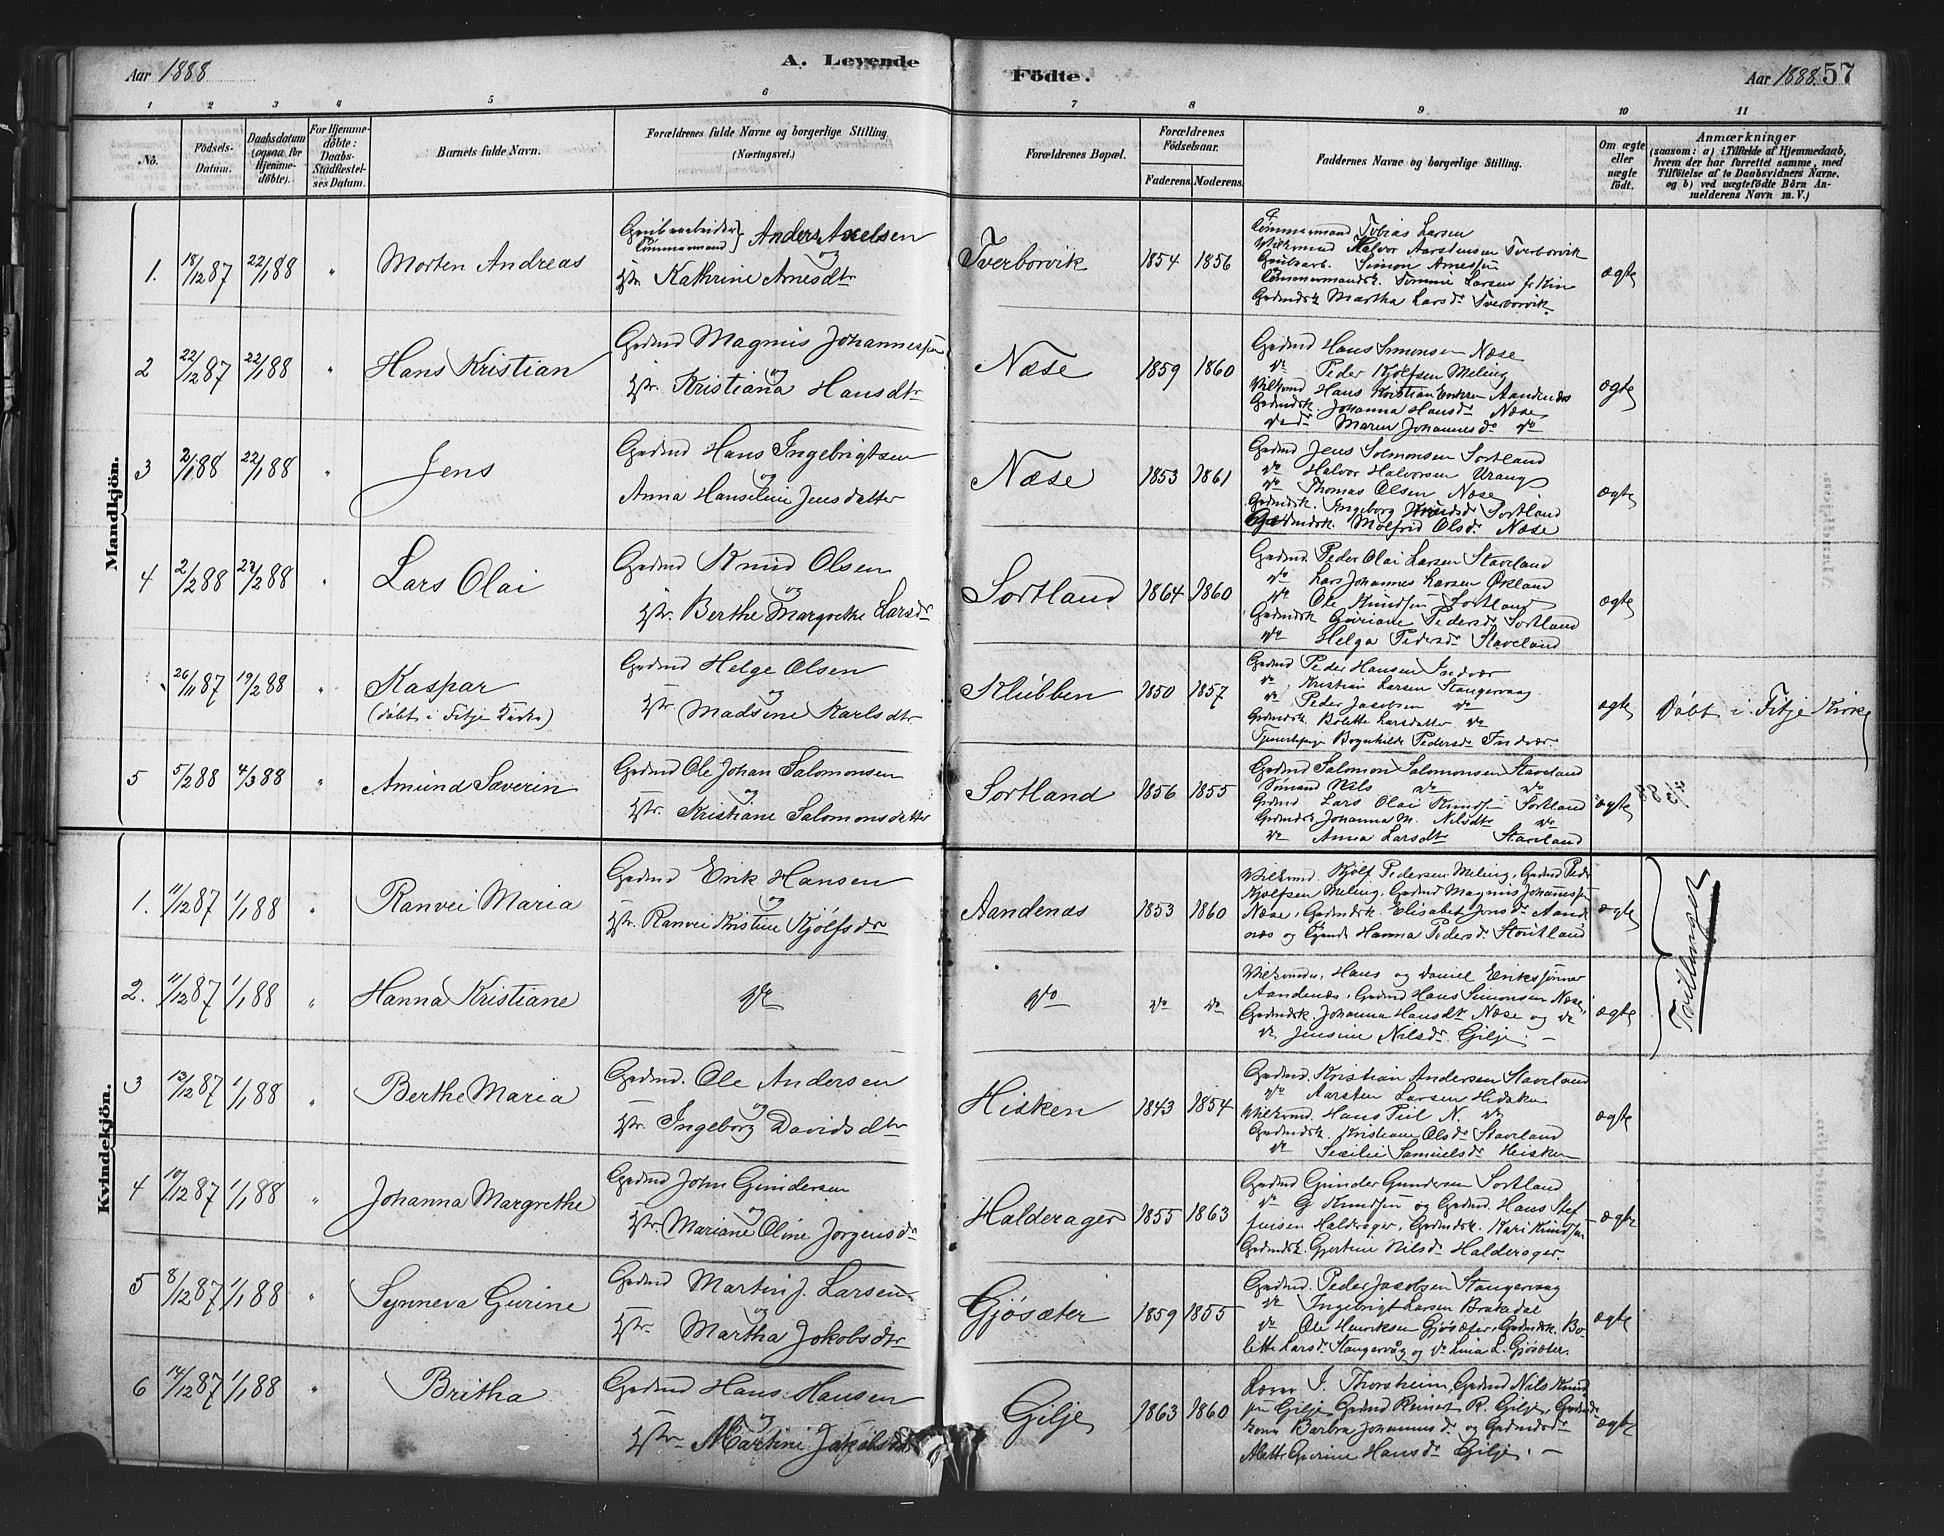 Aar 1888
A. Levende
Födte.
Aar 1888. 57
1 2 3 4 5 6 7 8 9 10 11
No.
Födsels-
Datum.
Daabsdatum
(ogsaa for
Hjemme-
döbte).
For Hjemme-
döbte:
Daabs-
Stadfæstel-
ses Datum.
Barnets fulde Navn.
Forældrenes fulde Navne og borgerlige Stilling.
(Næringsvei.)
Forældrenes Bopæl.
Forældrenes
Födselsaar.
Faderens. Moderens.
Faddernes Navne og borgerlige Stilling.
Om ægte
eller
uægte
födt.
Anmærkninger
(saasom: a) i Tilfælde af Hjemmedaab,
hvem der har forrettet samme, med
Tilföielse af to Daabsvidners Navne,
og b) ved uægtefödte Börn An-
melderens Navn m. V.)
Mandkjön.
1. 18/12 87 22/1 88 " Morten Andreas
Grubearbeider
Tömmermand } Anders Axelsen
og
Hstr. Kathrine Arnesdtr
Tverborvik 1854 1856
Tömmermand Tobias Larsen
Halvor Aarstensen Tverborvik
Simon Arnesen
Larsen
Gdmdsk Martha Larsdr Tverborvik.
ægte
2 22/12 87 22/1 88 " Hans Kristian
Gadmd Magnus Johannessen
og
Hstr. Kristiana Hansdtr
Næse 1859 1860
Gadmd Hans Simonsen Næse
do Peder Kjölfsen Meling
Hans Kristian Eriksen Aandenæs
Gadmdsk. Johanna Hansdr Næse
Maren Johannesdr do
ægte
3 2/1 88 22/1 88 " Jens
Gadmd Hans Ingebrigtsen
og
Anna Hanseline Jensdatter
Næse 1853 1861
Gadmd Jens Solmonsen Sortland
do Halvor Halvorsen Urang
do Thomas Olsen Næse
Gadmdsk. Ingeborg Sortland
Gadmdsk. Molfrid Olsdr Næse
ægte
4 2/2 88 22/2 88 " Lars Olai
Gadmd Knud Olsen
og
Hstr. Berthe Margrethe Larsdr
Sortland 1864 1860
Gadmd. Peder Olai Larsen Staveland
do Lars Johannes Larsen Økland
do Ole Knudsen Sortland
Gadmdsk Pedersdr Sortland
do Helga Pedersdr Staveland
ægte
26/11 87 19/2 88 " Kaspar
(döbt i Fitje Kirke)
Gadmd Helge Olsen
og
Hstr Madsine Karlsdtr
Klubben 1850 1857
Gadmd Peder Hansen Indvær
do Kristian Larsen Stangervaag
do Peder Jacobsen do
Gadmdsk Bolette Larsdatter do
Bognhilde Pedersdr Indvær.
ægte Döbt i Fitje Kirke
5 5/2 88 4/3 88 " Amund Severin
Gadmd Ole Johan Salomonsen
og
Hstr. Kristiane Salomonsdatter
Sortland 1856 1855
Gadmd Salomon Salomonsen Staveland
Sömand Nils do do
Gadmd Lars Olai Knudsen Sortland
Gadmdsk Johanna M. Nilsdtr do
do Anna Larsdtr Staveland
ægte
Kvindekjön.
1. 11/12 87 1/1 88 " Ranvei Maria
Gadmd Erik Hansen
og
Hstr. Ranvei Kristine Kjölfsdr
Aandenæs 1853 1860
Kjölf Pedersen Meling, Gadmd Peder
Kjölfsen Meling, Gadmd Magnus Johannessen
Næse, Gadmdsk. Elisabet Jonsdr Aande
næs og Hanna Pedersdr Stortland
ægte
Tvillinger
2. 11/12 87 1/1 88 " Hanna Kristiane
do
do do do
Hans og Daniel Erikssönner
Aandenæs, Gadmd Hans Simonsen Næse,
Gadmdsk. Johanna Hansdtr Næse og do
do Jensine Nilsdr Gilje. —
ægte
3 13/12 87 1/1 88 " Berthe Maria
Gadmd. Ole Andersen
og
Hstr. Ingeborg Davidsdtr
Hisken 1843 1854
Gadmd. Kristian Andersen Staveland
do Aarsten Larsen Hidsken
Hans Peil N. do
Gadmdsk. Kristiane Olsdr Staveland
do Secilie Samuelsdr Heisken
ægte
4 10/12 87 1/1 88 " Johanna Margrethe
Gadmd John Gundersen
og
Hstr. Mariane Oline Jörgensdr
Halderager 1855 1863
Gadmd Gunder Gundersen Sortland
do G Knudsen og Gadmd. Hans Stef
fensen Halderager, Gadmdsk. Kari Knudsen
Gadmdsk. Gjertine Nilsdr Halderager.
ægte
5 8/12 87 1/1 88 " Synneva Gurine
Gadmd Martin J. Larsen
og
Hstr. Martha Jokobsdtr
Gjösæter 1859 1855
Gadmd. Peder Jacobsen Stangervaag
do Ingebrigt Larsen Brakedal
do Ole Henriksen Gjösæter, Gadmdsk. Bo-
lette Larsdr Stangervåg og do Lina L. Gjösæter.
ægte
6 14/12 87 1/1 88 " Britha
Gadmd Hans Hansen
og
Hstr Martine Jakobsdtr
Gilje 1863 1860
Lærer J. Thorsheim, Gadmd Nils Knud
sen Gilje Gadmd Reinert R. Gilje, Gadmds
kone Barbra Johannesdr og Gadmdsdr
Mette Gurine Hansdr Gilje. —
ægte